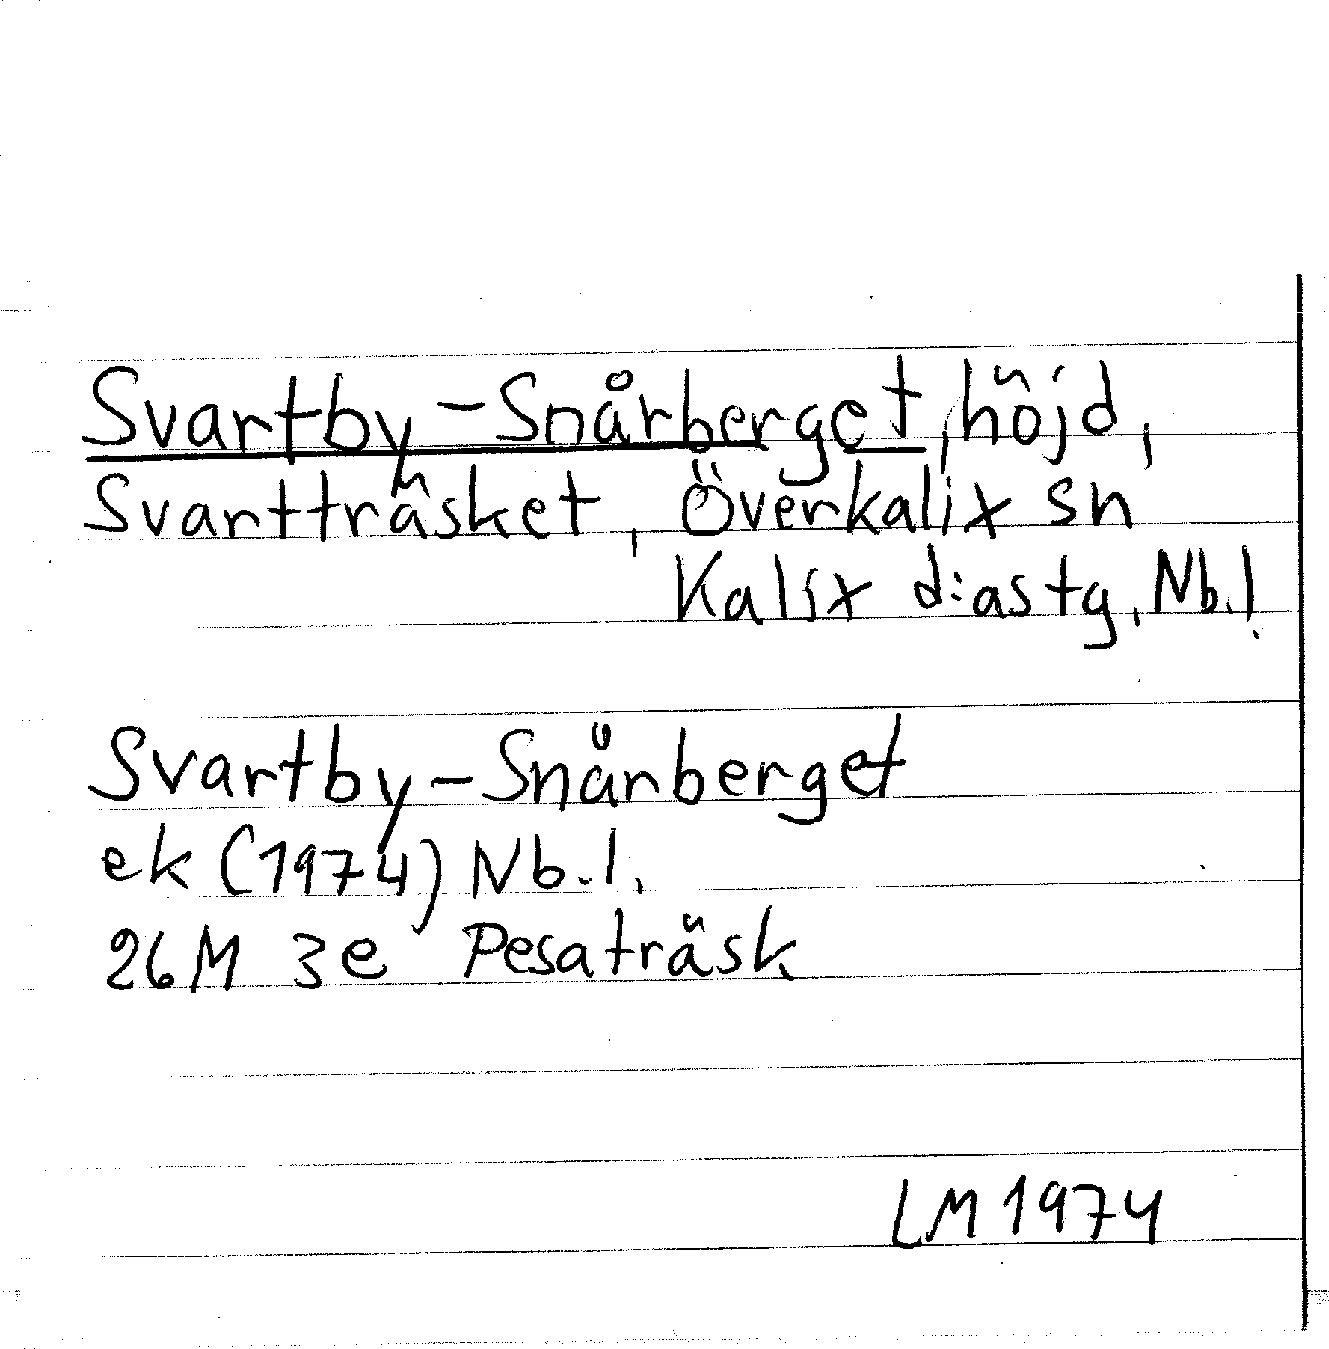 Svartby-Snårberget, höjd,
Svartträsket, Överkalix sn
Kalix d:astg, Nb.l.
Svartby-Snårberget
ek (1974) Nb.l.
26M 3e Pesaträsk
LM 1974